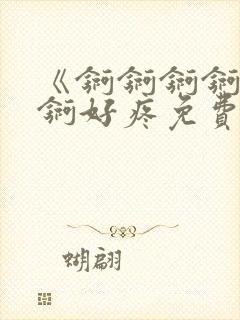 《锕锕锕锕
锕好疼免費
蝴翩